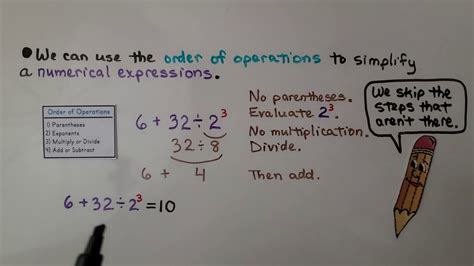 • We can use the order of operations to simplify
a numerical expressions.
Order of Operations
1) Parentheses
2) Exponents
3) Multiply or Divide
4) Add or Subtract
6 + 32 ÷ 2³
32 ÷ 8
6 + 4
No parentheses.
Evaluate 2³.
No multiplication.
Divide.
Then add.
We skip the
steps that
aren't there.
6 + 32 ÷ 2³ = 10